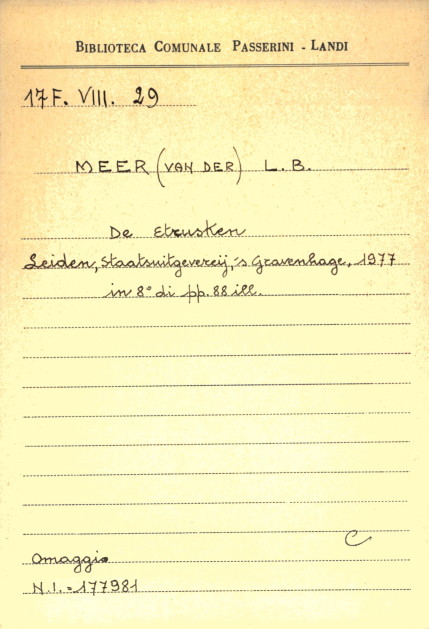 BIBLIOTECA COMUNALE PASSERINI - LANDI
17F. VIII. 29
MEER (VAN DER) L. B.
De Etrusken
Leiden, Staatsuitgevereij, 's Gravenhage, 1977
in 8° di pp. 88 ill.
C
Omaggio
N.I. = 177981